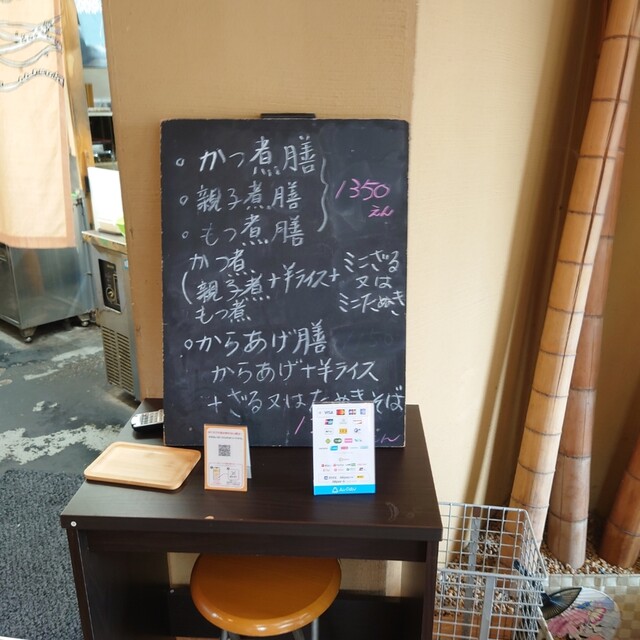 ○ かつ煮膳
○ 親子煮膳
○ もつ煮膳
1350
えん
かつ煮
親子煮
もつ煮
+半ライス+
ミニざる
又は
ミニたぬき
○からあげ膳
からあげ+半ライス
+ざる又はたぬきそば
えん
VISA